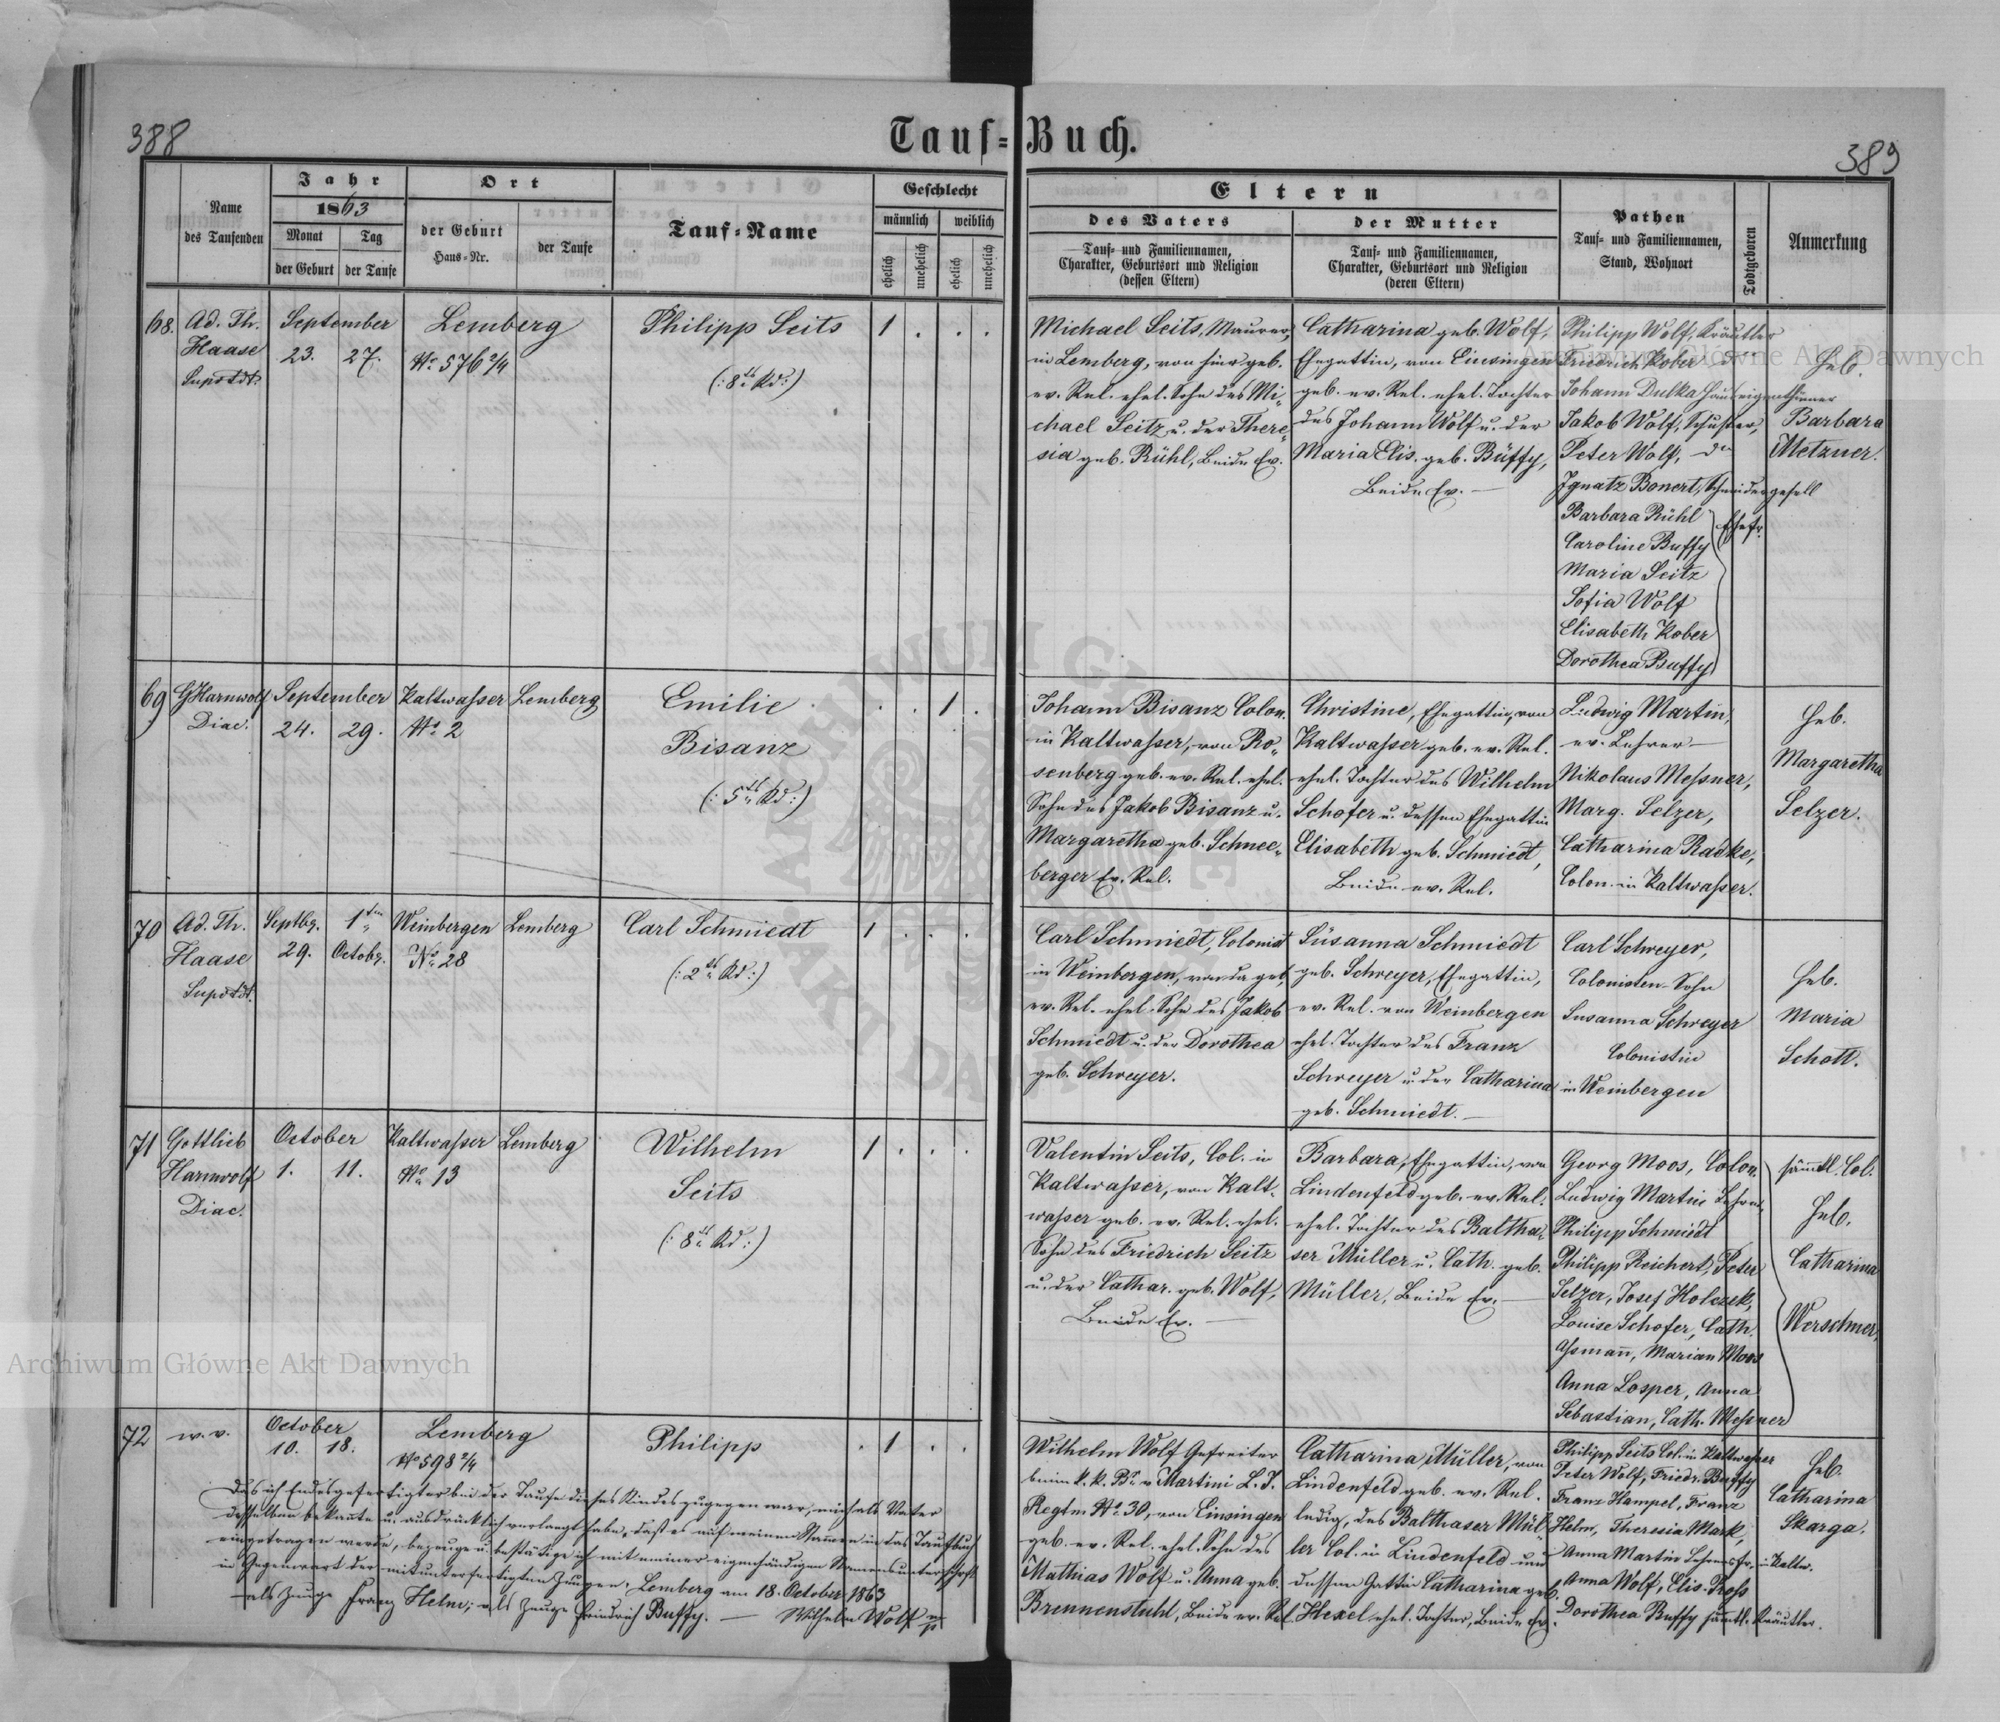 388
Tauf-Buch.
389
Name
des Taufenden
Jahr
1863
Monat
Tag
der Geburt
der Taufe
Ort
der Geburt
Haus-Nr.
der Taufe
Tauf-Name
Geschlecht
männlich
weiblich
ehelich
unehelich
ehelich
unehelich
Eltern
des Vaters
Tauf- und Familiennamen,
Charakter, Geburtsort und Religion
(dessen Eltern)
der Mutter
Tauf- und Familiennamen,
Charakter, Geburtsort und Religion
(deren Eltern)
Pathen
Tauf- und Familiennamen,
Stand, Wohnort
Todtgeboren
Anmerkung
68.
Ad. Th.
Haase
Supdt.
September
23. 27.
Lemberg
No 576 2/4
Philipp Seits
(:8ts Kd:)
1 . . .
Michael Seits, Maurer,
in Lemberg, von hier geb.
ev. Rel. ehel. Sohn des Mi-
chael Seitz u. der There-
sia geb. Rühl, Beide Ev.
Catharina geb. Wolf,
Ehegattin, von Einsingen
geb. ev. Rel. ehel. Tochter
des Johann Wolf u. der
Maria Elis. geb. Büffy,
Beide Ev. —
Philipp Wolf, Kräutler
Friedrich Kober do
Johann Dulka Hauseigenthümer
Jakob Wolf, Schuster,
Peter Wolf, do
Ignatz Bonert, Schneidergesell
Barbara Rühl
Caroline Buffy
Maria Seitz
Sofia Wolf
Elisabeth Kober
Dorothea Buffy
Ehefr.
Heb.
Barbara
Metzner.
69
G Harnwolf
Diac.
September
24. 29.
Kaltwasser
No 2
Lemberg
Emilie
Bisanz
(:5ts Kd:)
. . 1 .
Johann Bisanz Colon.
in Kaltwasser, von Ro-
senberg geb. ev. Rel. ehel.
Sohn des Jakob Bisanz u.
Margaretha geb. Schnee-
berger Ev. Rel.
Christine, Ehegattin, von
Kaltwasser geb. ev. Rel.
ehel. Tochter des Wilhelm
Schofer u. dessen Ehegattin
Elisabeth geb. Schmiedt,
Beide ev. Rel.
Ludwig Martin,
ev. Lehrer —
Nikolaus Messner,
Marg. Selzer,
Catharina Radke,
Colon. in Kaltwasser.
Heb.
Margaretha
Selzer.
70
Ad. Th.
Haase
Supdt.
Septbr. 1ten
29. Octobr.
Weinbergen
No 28
Lemberg
Carl Schmiedt
(:2ts Kd:)
1 . . .
Carl Schmiedt, Colonist
in Weinbergen, von da geb.
ev. Rel. ehel. Sohn des Jakob
Schmiedt u. der Dorothea
geb. Schreyer.
Susanna Schmiedt
geb. Schreyer, Ehegattin,
ev. Rel. von Weinbergen
ehel. Tochter des Franz
Schreyer u. der Catharina
geb. Schmiedt. —
Carl Schreyer,
Colonisten-Sohn
Susanna Schreyer
Colonistin
in Weinbergen
Heb.
Maria
Schott.
71
Gottlieb
Harnwolf
Diac.
October
1. 11.
Kaltwasser
No 13
Lemberg
Wilhelm
Seits
(:8ts Kd:)
1 . . .
Valentin Seits, Col. in
Kaltwasser, von Kalt-
wasser geb. ev. Rel. ehel.
Sohn des Friedrich Seitz
u. der Cathar. geb. Wolf,
Beide Ev. —
Barbara, Ehegattin, von
Lindenfeld geb. ev. Rel.
ehel. Tochter des Baltha-
ser Müller u. Cath. geb.
Müller, Beide Ev. —
Georg Moos, Colon.
Ludwig Martin Lehrer,
Philipp Schmiedt
Philipp Reichert, Peter
Selzer, Josef Holczek,
Louise Schofer, Cath.
Assmañ, Marian Moos
Anna Losper, Anna
Sebastian, Cath. Messner
sämtl. Col.
Heb.
Catharina
Werschner,
72
w. v.
October
10. 18.
Lemberg
No 598 2/4
Philipp
. 1 . .
Wilhelm Wolf Gefreiter
beim k. k. Br. v. Martini L. I.
Regtm No 30, von Einsingen
geb. ev. Rel. ehel. Sohn des
Mathias Wolf u. Anna geb.
Brennenstuhl, Beide ev. Rel.
Catharina Müller, von
Lindenfeld geb. ev. Rel.
ledig, des Balthaser Mül-
ler Col. in Lindenfeld und
dessen Gattin Catharina geb.
Hexel ehel. Tochter, Beide Ev.
Philipp Seits Col. in Kaltwasser
Peter Wolf, Friedr. Buffy
Franz Hampel, Franz
Helm, Theresia Mark,
Anna Martin Lehrersfr. in Kaltw.
Anna Wolf, Elis. Pross
Dorothea Buffy sämtl. Kräutler.
Heb.
Catharina
Skarga.
Das ich Endesgefertigter bei der Taufe dieses Kindes zugegen war, mich als Vater
desselben bekañte u. ausdrücklich verlangt habe, dass es auf meinen Namen in das Taufbuch
eingetragen werde, bezeuge u. bestätige ich mit meiner eigenhändigen Namensunterschrift
in Gegenwart der mitunterfertigten Zeugen. Lemberg am 18. October 1863
als Zeuge Franz Helm; als Zeuge Friedrich Buffy. — Wilhelm Wolf mp
Archiwum Główne Akt Dawnych
Archiwum Główne Akt Dawnych
ARCHIWUM GŁÓWNE AKT DAWNYCH